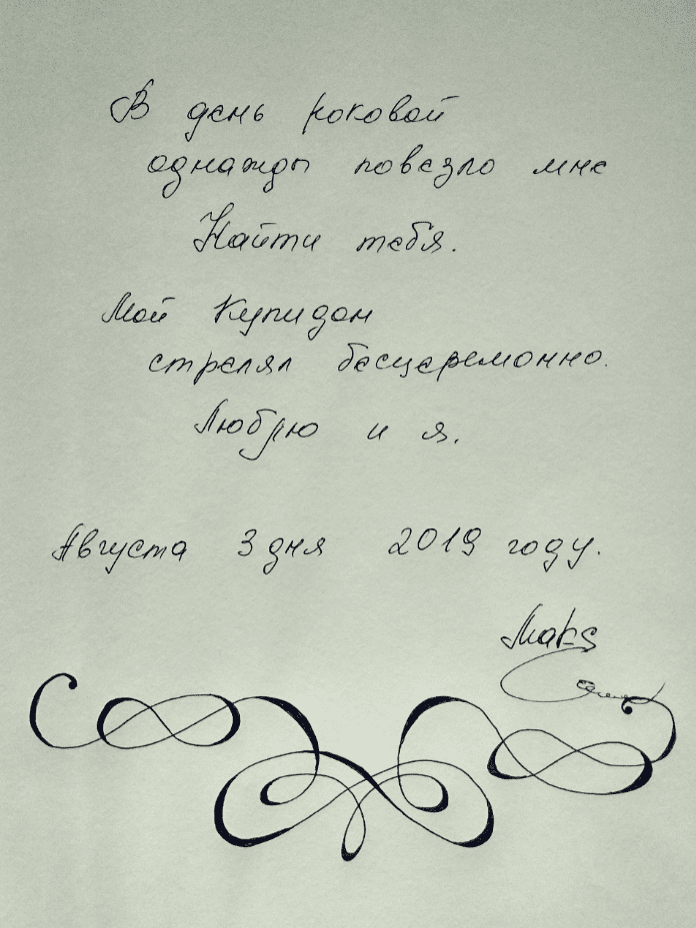 В день роковой
однажды повезло мне
Найти тебя.
Мой Купидон
стрелял бесцеремонно.
Люблю и я.
Августа 3 дня 2019 году.
Maks